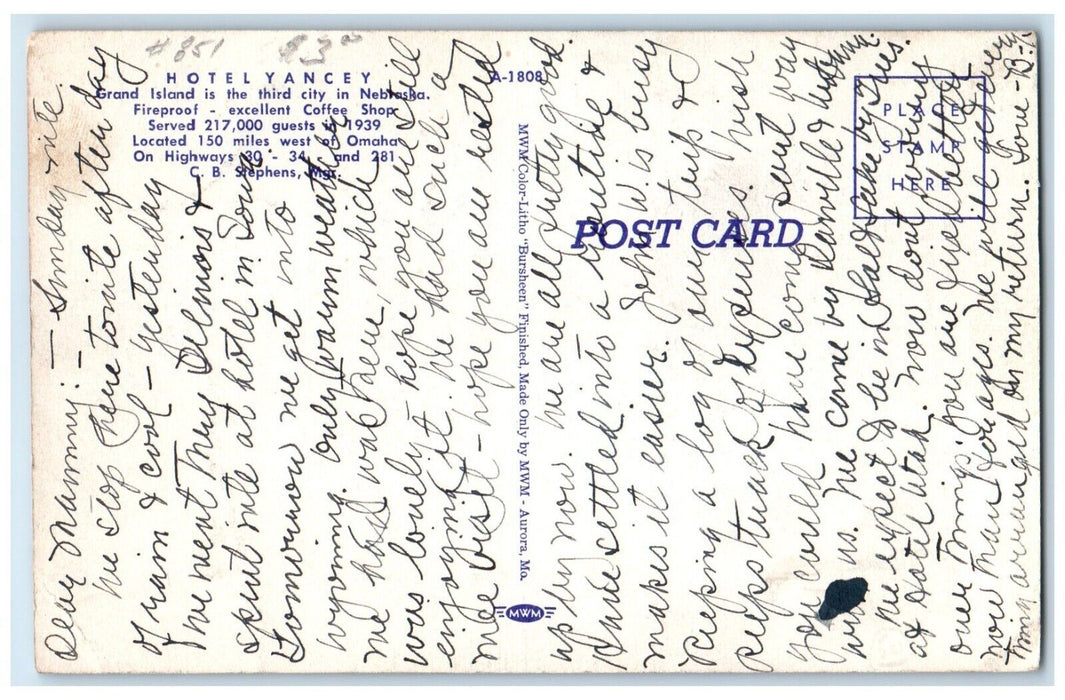 #851 $3⁰⁰
HOTEL YANCEY
Grand Island is the third city in Nebraska.
Fireproof - excellent Coffee Shop
Served 217,000 guests in 1939
Located 150 miles west of Omaha
On Highways 30 - 34 and 281
C. B. Stephens, Mgr.
A-1808
MWM Color-Litho "Bursheen" Finished, Made Only by MWM - Aurora, Mo.
MWM
POST CARD
PLACE
STAMP
HERE
Dear Mammy: — Sunday nite.
We stop here tonite after day
of rain & cool — yesterday
We went thru &
spent nite at hotel in
Tomorrow we get into
Wyoming. Only warm weather
we had was here, which
was lovely — hope you all still
enjoying it. We had such a
nice visit — hope you are rested
up by now. We are all pretty good.
settled into a routine &
makes it easier. John W. is busy
keeping a log of our trip &
keeps track of expenses. Wish
you could have come out way
with us. We came by Danville
We expect to be in Salt Lake by Tues.
at Hotel Utah. Now don't worry any
over Tommy; you are better
now than for ages. We will get every
thin arranged on my return. Love - B.